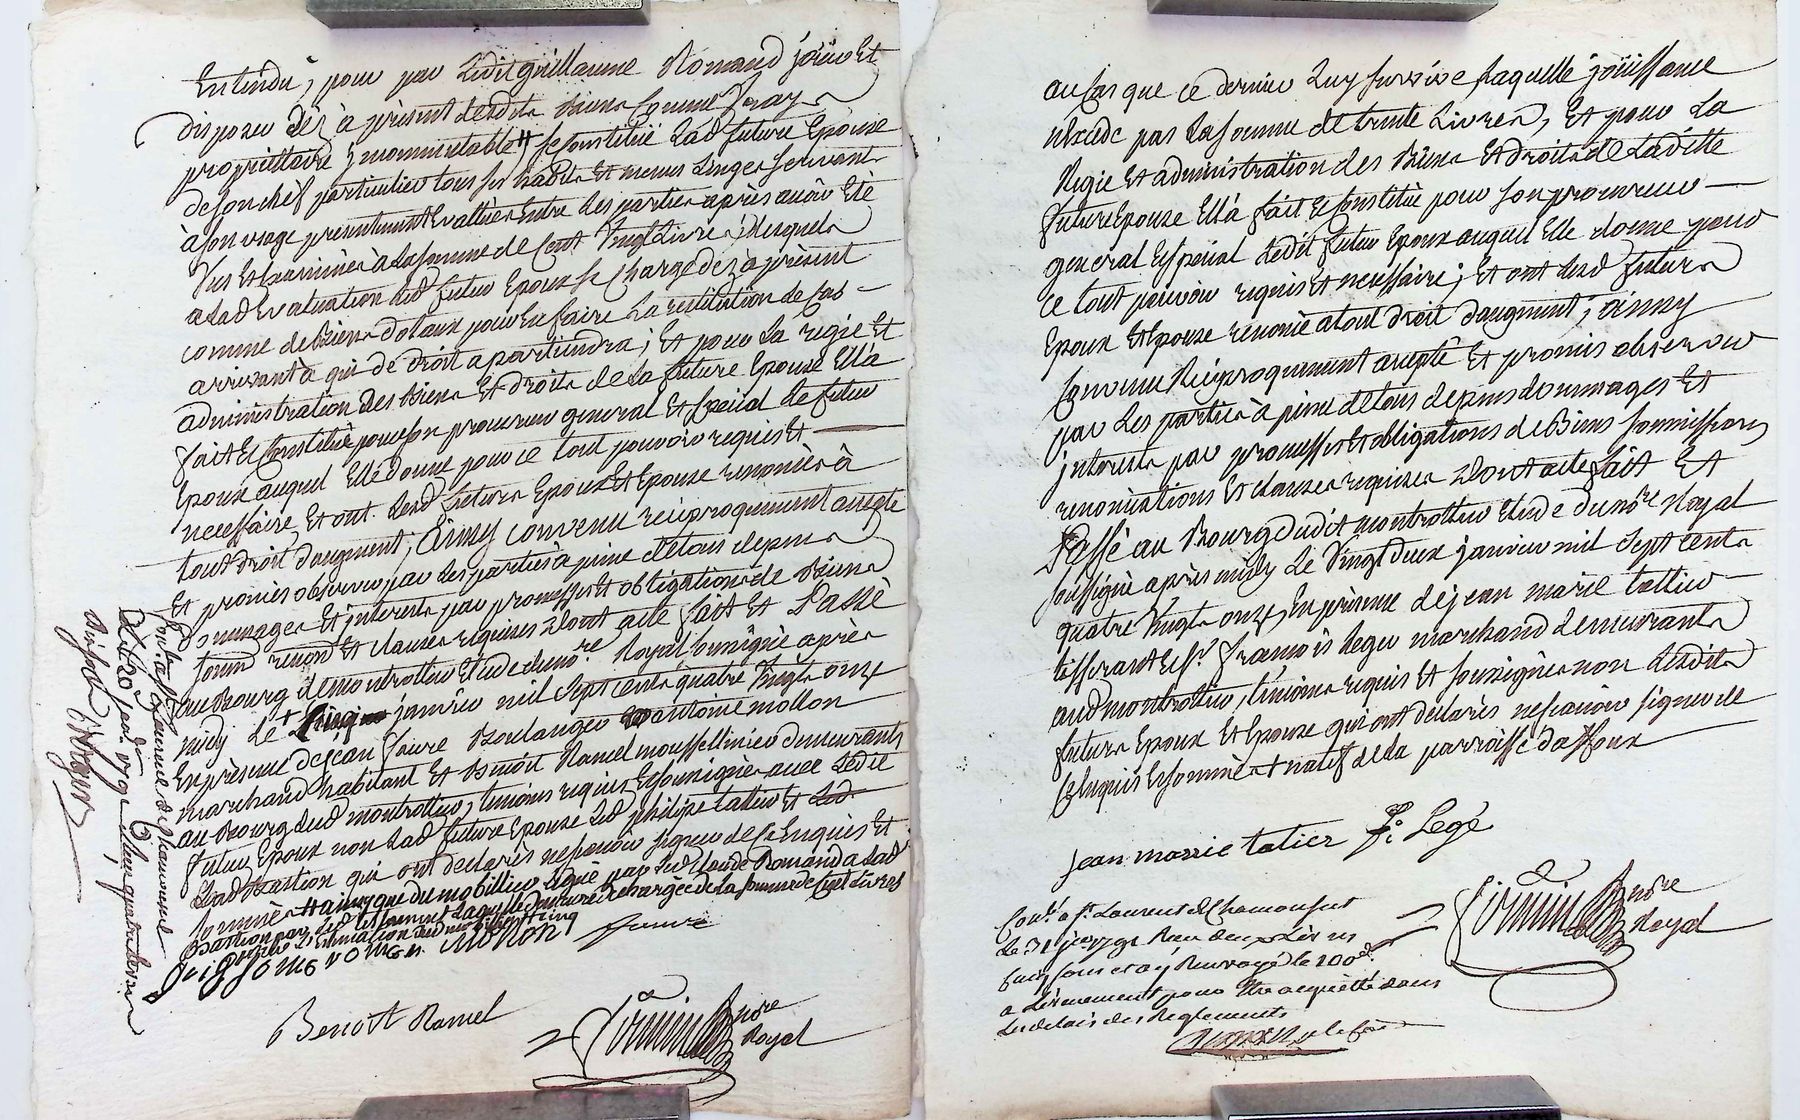 Entendu, pour par Ledit guillaume Romand joüir Et
disposer déz à présent desdits biens Comme vray
propriéttaire jncommutable # se constitüé Lad future Epouse
de son chef particulier tous ses habits Et menus Linges servant
à son usage presentement Evalluéz Entre Les parties après avoir Eté
Vus Et Examinéz à La somme de Cent Vingt Livres, desquels
a Lad Evaluation Led futur Epoux se Charge dez à présent
comme de Biens dotaux pour En faire La restitution Le Cas
arrivant à qui de droit apartiendra; Et pour La regie Et
administration des biens Et droits de La future Epouse Ella
fait Et Constitué pour son procureur general Et special Le futur
Epoux auquel Elle donne pour ce tout pouvoir requis Et
necessaire, Et ont Lesd futurs Epoux Et Epouse renoncéz à
tout droit daugment; Ainsy convenu réciproquement accepté
Et promis observer par Les parties à peine de tous depens
domages Et jnterests par promesses Et obligations de Biens
soum renon Et clauses requises Dont acte fait Et Passé
au Bourg de montrottier Etude du nore Royal soussigné après
midy Le + janvier mil sept cents quatre Vingts onze
En présence de jean faure Boulanger antoine mollon
marchand habitant Et Benoit Ramel moussellinier demeurants
au Bourg dud montrottier, temoins requis Et soussignéz avec Ledit
futur Epoux non Lad future Epouse Led philipe tatier et Led
Lad Bastion qui ont declarés ne sçavoir signer de ce Enquis Et
sommés # ainsy que du mobillier Légué par Led Claude Romand a Lad
Bastion par sond testament
guigaume romen Mollon faure
Benoît Ramel
fornin nore
Royal
Contlé à St Laurent de Chamousset
Le janvr 1791
au Cas que ce dernier Luy survive Laquelle joüissance
nExcede pas La somme de trente Livres, Et pour La
Regie Et administration des Biens Et droits de Laditte
future Epouse Ella fait Et Constitüé pour son procureur
general Et special Ledit futur Epoux auquel Elle donne pour
ce tout pouvoir requis Et necessaire; Et ont Lesd futurs
Epoux Et Epouse renoncé a tout droit daugment; ainsy
Convenu Réciproquement accepté Et promis observer
par Les parties à peine de tous depens dommages Et
jnterests par promesses Et obligations de Biens soumissions
renonciations Et clauses requises Dont acte fait Et
Passé au Bourg dudit montrottier Etude du nore Royal
soussigné après midy Le Vingt deux janvier mil sept cents
quatre Vingts onze, En présence de jean marie tattier
tisserant Et Sr françois Legé marchand demeurants
aud montrottier, temoins requis Et soussignés non Lesdits
futurs Epoux Et Epouse qui ont déclarés ne sçavoir signer de
ce Enquis Et sommés + natif de la parroisse daffoux
jean marrie tatier f: Legé
fornin nore
Royal
Contlé a St Laurent de Chamousset
Le 31 jer 1791 Reçu deux Livres
cinq sous et ay Renvoyé le 100e
a L'évenement pour Etre acquitté dans
Les delais des Reglements